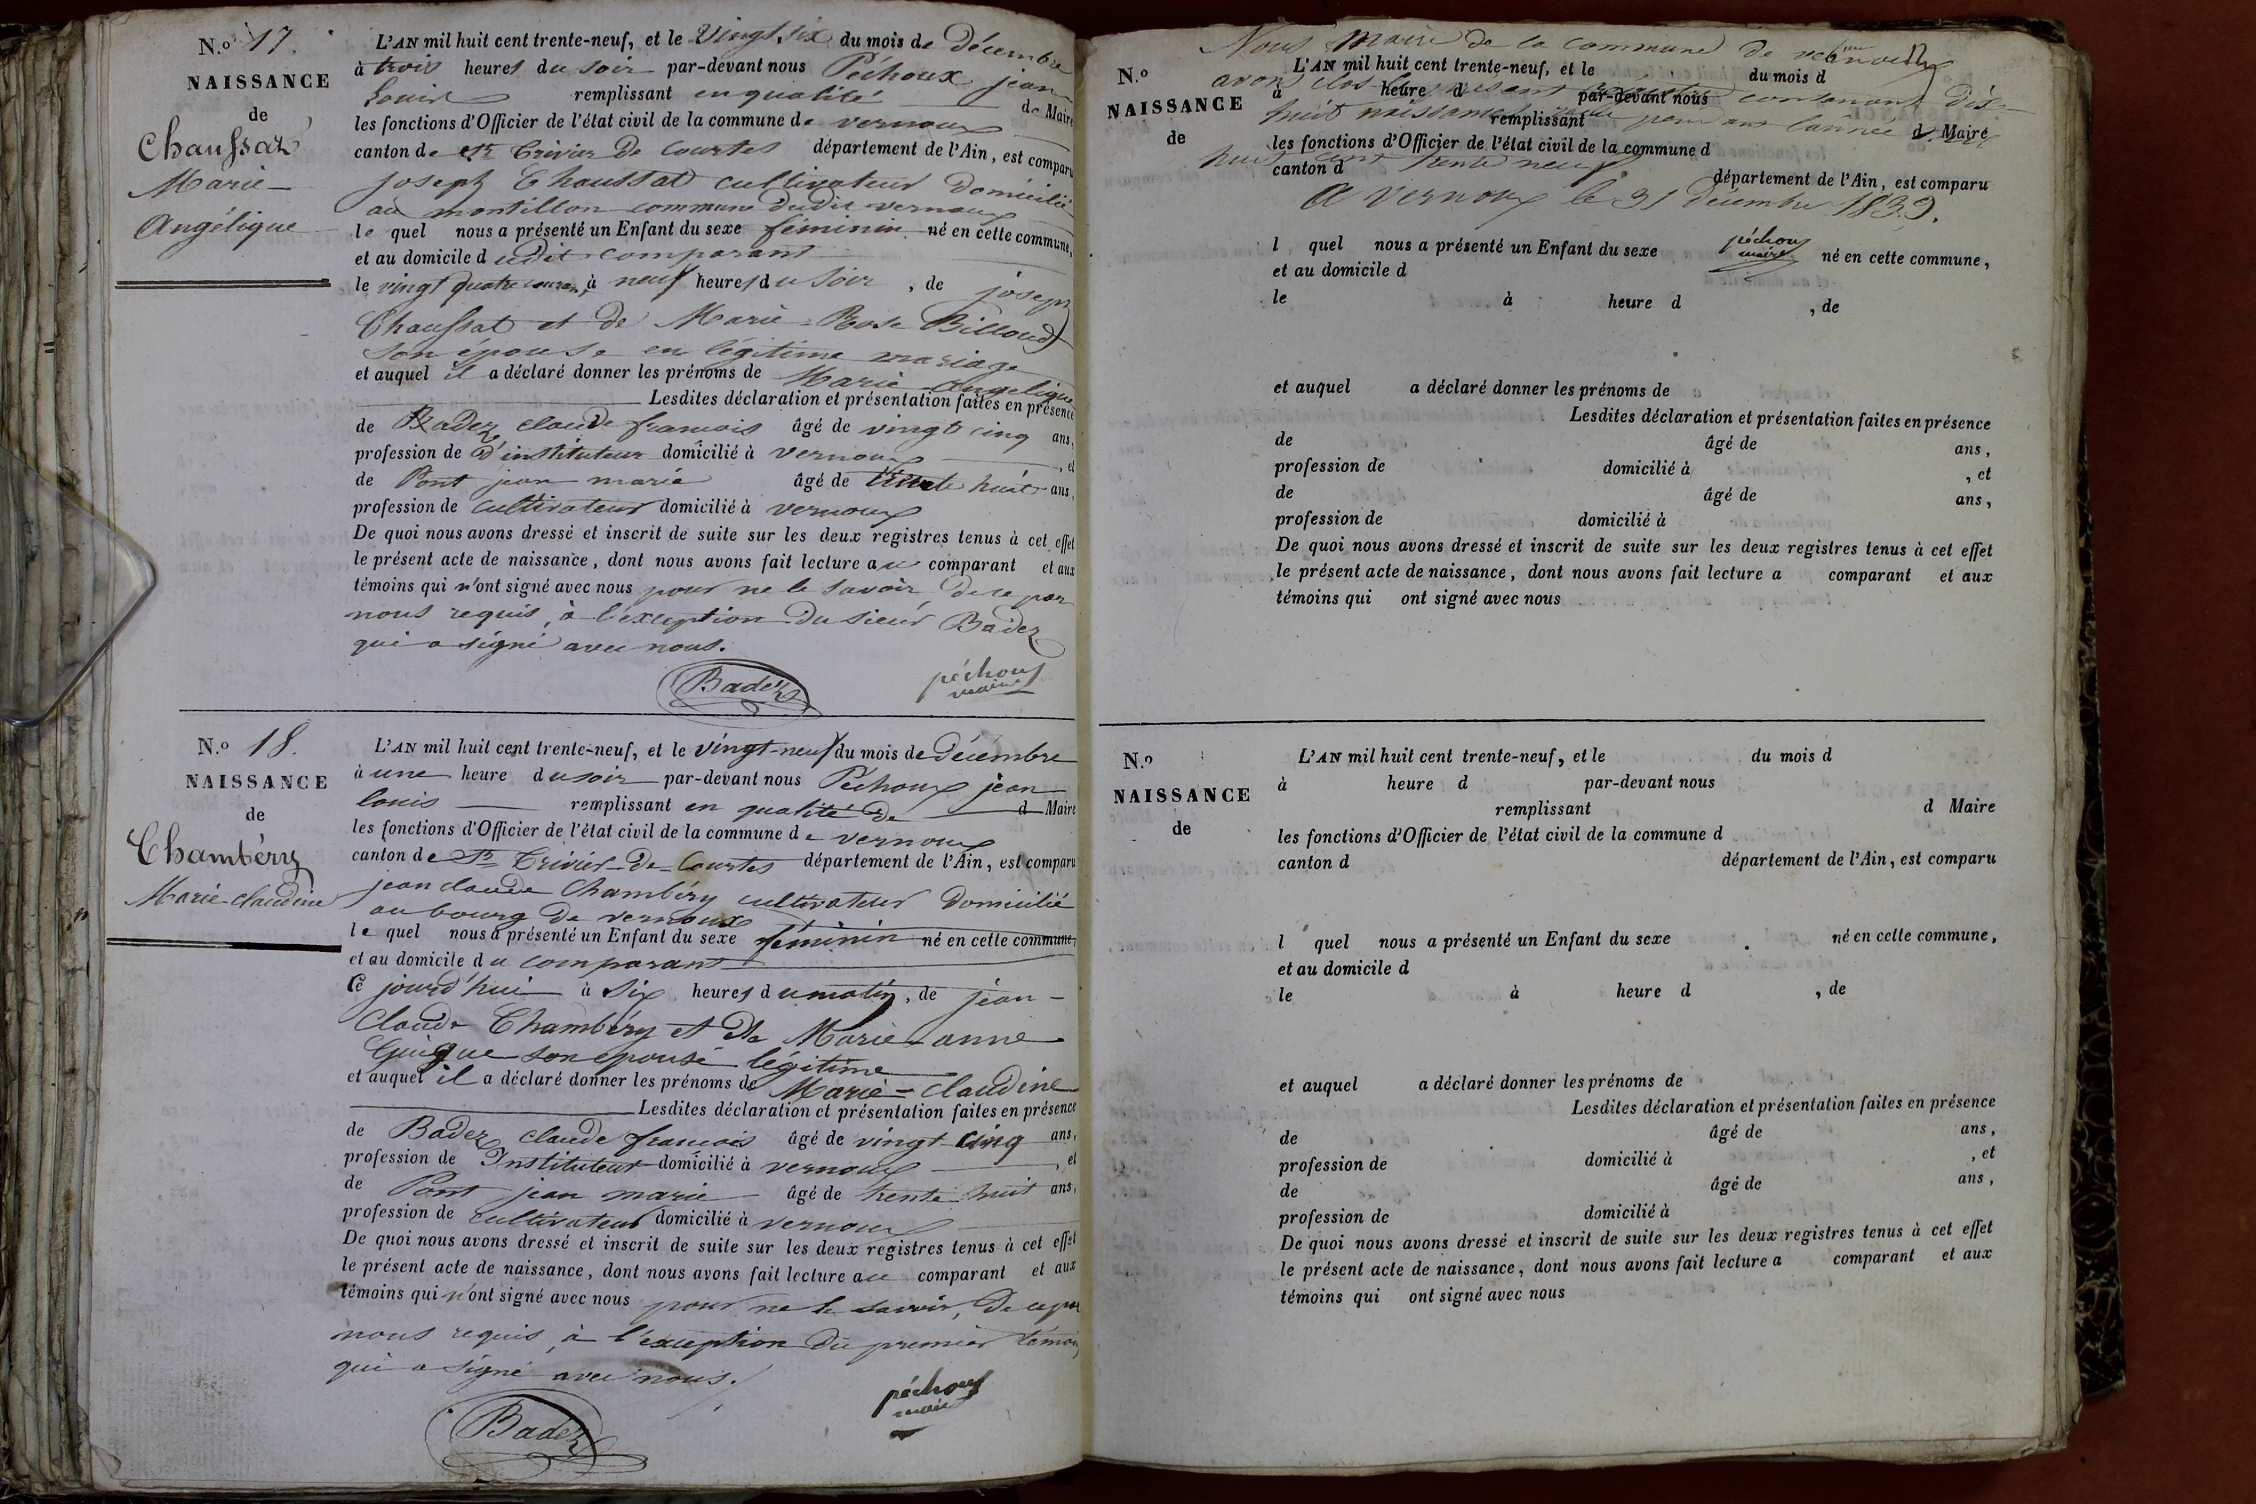 N.º 17.
NAISSANCE
de
Chaussat
Marie
Angélique
L'AN mil huit cent trente-neuf, et le Vingt six du mois de Décembre
à trois heures du soir par-devant nous Péchoux jean
Louis remplissant en qualité de Maire
les fonctions d'Officier de l'état civil de la commune de vernoux
canton de St Trivier De Courtes département de l'Ain, est comparu
joseph Chaussat cultivateur Domicilié
au montillon commune Dudit vernoux
le quel nous a présenté un Enfant du sexe féminin né en cette commune,
et au domicile dudit comparant
le vingt quatre courant, à neuf heures du soir, de joseph
Chaussat et de Marie Rose Billoud
son épouse en légitime mariage
et auquel il a déclaré donner les prénoms de Marie Angelique
Lesdites déclaration et présentation faites en présence
de Badez claude francois âgé de vingt cinq ans,
profession de d'instituteur domicilié à vernoux, et
de Pont jean marie âgé de trente huit ans,
profession de cultivateur domicilié à vernoux
De quoi nous avons dressé et inscrit de suite sur les deux registres tenus à cet effet
le présent acte de naissance, dont nous avons fait lecture au comparant et aux
témoins qui n'ont signé avec nous pour ne le savoir De ce par
nous requis, à l'exception du sieur Badez
qui a signé avec nous.
Badez
péchoux
maire
N.º 18.
NAISSANCE
de
Chambéry
Marie-claudine
L'AN mil huit cent trente-neuf, et le vingt-neuf du mois de Décembre
à une heure du soir par-devant nous Péchoux jean
louis remplissant en qualité de d Maire
les fonctions d'Officier de l'état civil de la commune de vernoux
canton de St Trivier-De-Courtes département de l'Ain, est comparu
jean claude Chambéry cultivateur Domicilié
au bourg De vernoux
le quel nous a présenté un Enfant du sexe féminin né en cette commune,
et au domicile du comparant
Ce jourd'hui à six heures du matin, de jéan
Claude Chambéry et De Marie-anne
Guigue son epouse légitime
et auquel il a déclaré donner les prénoms de Marie-Claudine
Lesdites déclaration et présentation faites en présence
de Badez claude francois âgé de vingt cinq ans,
profession de Instituteur domicilié à vernoux, et
de Pont jean marie âgé de trente huit ans,
profession de cultivateur domicilié à vernoux
De quoi nous avons dressé et inscrit de suite sur les deux registres tenus à cet effet
le présent acte de naissance, dont nous avons fait lecture au comparant et aux
témoins qui n'ont signé avec nous pour ne le savoir, De ce par
nous requis, à l'exception Du premier témoin
qui a signé avec nous.
Badez
péchoux
maire
Nous Maire de la commune de vernoux
N.º
NAISSANCE
de
L'AN mil huit cent trente-neuf, et le du mois d
avons clos le présent registre contenant dix
à heure d par-devant nous
huit naissances pour l'année
remplissant d Maire
les fonctions d'Officier de l'état civil de la commune d
huit cent trente neuf.
canton d département de l'Ain, est comparu
A Vernoux le 31 Décembre 1839.
péchoux
maire
l quel nous a présenté un Enfant du sexe né en cette commune,
et au domicile d
le à heure d , de
et auquel a déclaré donner les prénoms de
Lesdites déclaration et présentation faites en présence
de âgé de ans,
profession de domicilié à , et
de âgé de ans,
profession de domicilié à
De quoi nous avons dressé et inscrit de suite sur les deux registres tenus à cet effet
le présent acte de naissance, dont nous avons fait lecture a comparant et aux
témoins qui ont signé avec nous
N.º
NAISSANCE
de
L'AN mil huit cent trente-neuf, et le du mois d
à heure d par-devant nous
remplissant d Maire
les fonctions d'Officier de l'état civil de la commune d
canton d département de l'Ain, est comparu
l quel nous a présenté un Enfant du sexe né en cette commune,
et au domicile d
le à heure d , de
et auquel a déclaré donner les prénoms de
Lesdites déclaration et présentation faites en présence
de âgé de ans,
profession de domicilié à , et
de âgé de ans,
profession de domicilié à
De quoi nous avons dressé et inscrit de suite sur les deux registres tenus à cet effet
le présent acte de naissance, dont nous avons fait lecture a comparant et aux
témoins qui ont signé avec nous